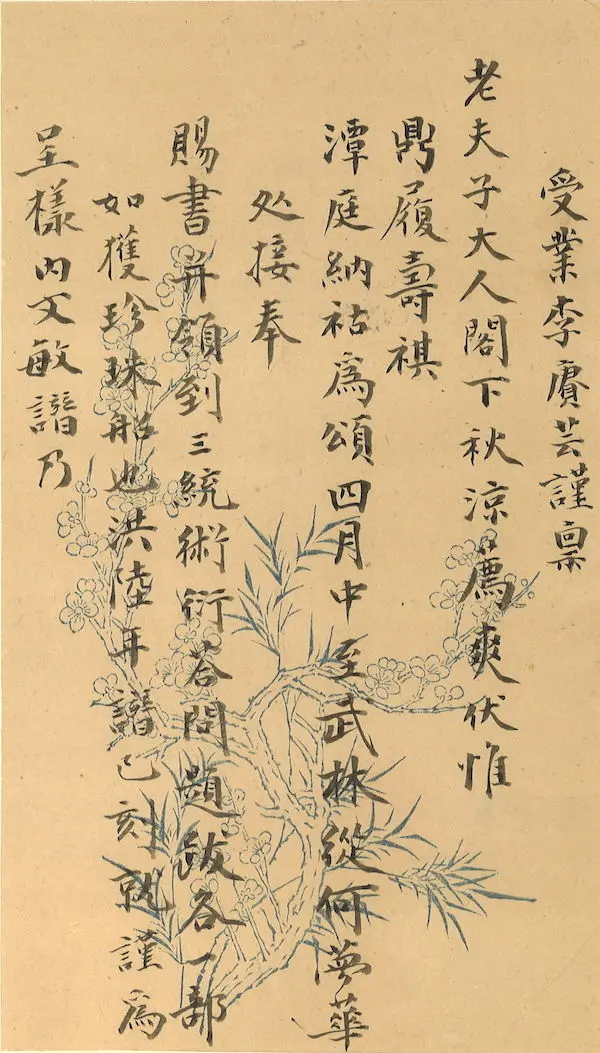 受業李賡芸謹稟
老夫子大人閣下秋涼薦爽伏惟
鼎履壽祺
潭庭納祜為頌四月中至武林從何夢華
处接奉
賜書并領到三統術衍荅問題跋各一部
如獲珍珠船也洪陸年譜已刻就謹為
呈樣內文敏譜乃